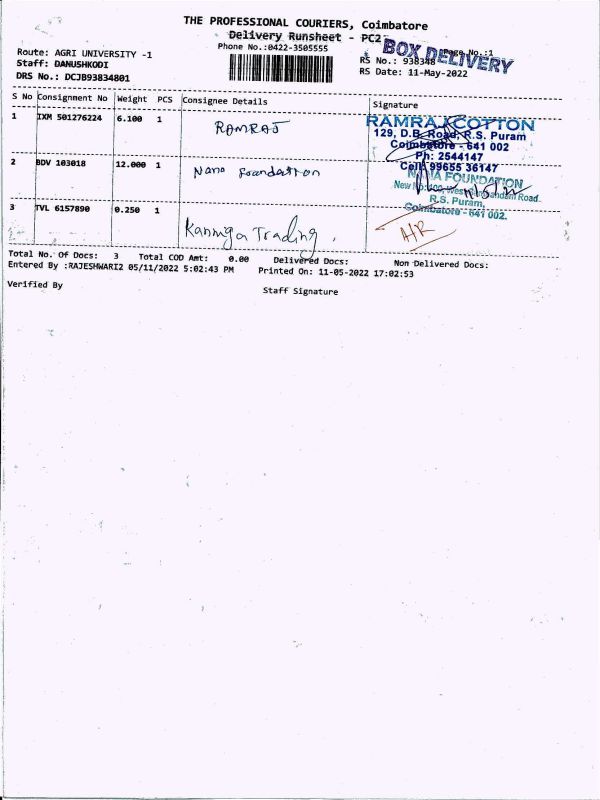 THE PROFESSIONAL COURIERS, Coimbatore
Delivery Runsheet - PC2
Phone No.:0422-3505555
BOX DELIVERY
Page No.:1
Route: AGRI UNIVERSITY -1
RS No.: 938348
Staff: DANUSHKODI
RS Date: 11-May-2022
DRS No.: DCJB93834801
S No Consignment No Weight PCS Consignee Details Signature
1 IXM 501276224 6.100 1 RAMRAJ
RAMRAJ COTTON
129, D.B. Road, R.S. Puram
Coimbatore - 641 002
Ph: 2544147
Cell: 99655 36147
2 BDV 103018 12.000 1 Nano Foundation
FOUNDATION
Road.
R.S. Puram,
Coimbatore - 641 002.
11/5/22
3 TVL 6157890 0.250 1 Kanniga Trading.
A/R
Total No. Of Docs: 3 Total COD Amt: 0.00 Delivered Docs: Non Delivered Docs:
Entered By :RAJESHWARI2 05/11/2022 5:02:43 PM Printed On: 11-05-2022 17:02:53
Verified By
Staff Signature